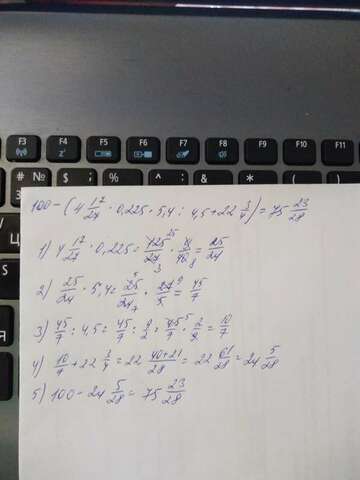 F3 F4 F5 F6 F7 F8 F9 F10 F11
100-(4 17/27 · 0,225 · 5,4 : 4,5 + 22 3/4) = 75 23/28
1) 4 17/27 · 0,225 = 125/27 · 9/40 = 25/24
2) 25/24 · 5,4 = 25/24 · 27/5 = 45/7
3) 45/7 : 4,5 = 45/7 : 9/2 = 45/7 · 2/9 = 10/7
4) 10/7 + 22 3/4 = 22 40+21/28 = 22 61/28 = 24 5/28
5) 100 - 24 5/28 = 75 23/28